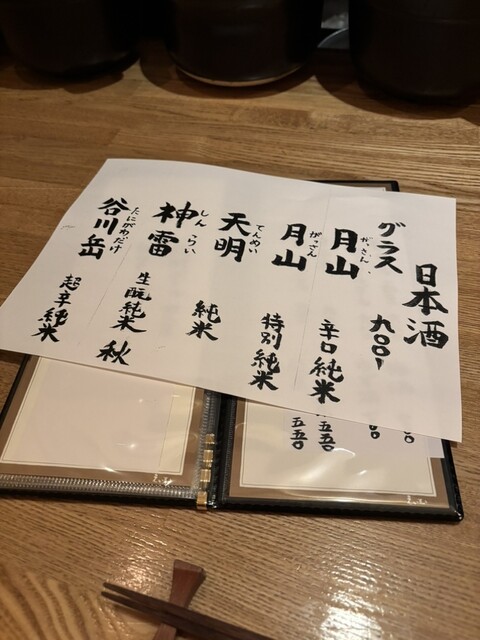 日本酒
グラス 九〇〇
月山 がっさん 辛口純米
月山 がっさん 特別純米
天明 てんめい 純米
神雷 しんらい 生酛純米 秋
谷川岳 たにがわだけ 超辛純米
五五〇
五五〇